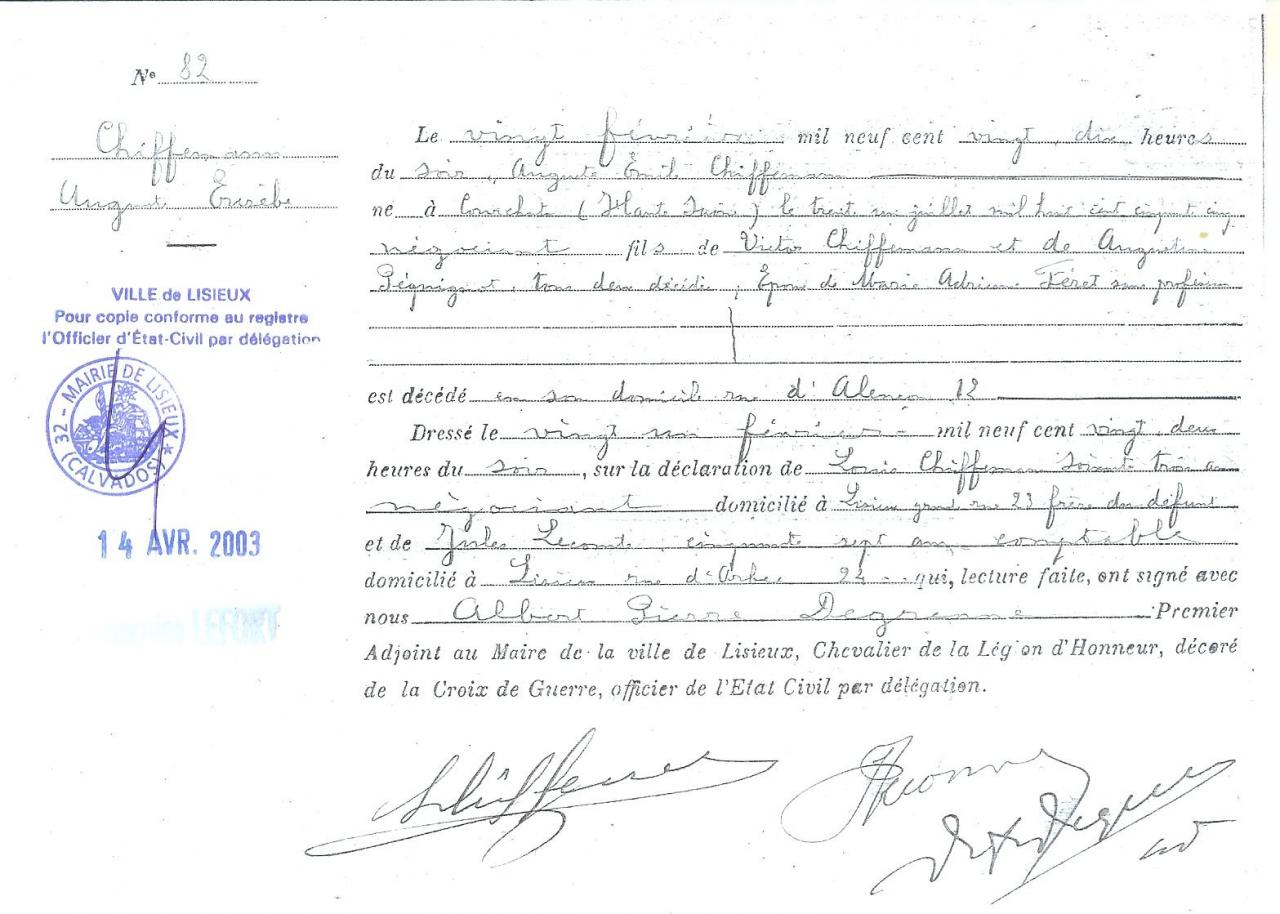 N° 82
Chiffemann
August Eusèbe
VILLE de LISIEUX
Pour copie conforme au registre
l'Officier d'État-Civil par délégation
32 - MAIRIE DE LISIEUX
(CALVADOS)
14 AVR. 2003
LEFORT
Le vingt février mil neuf cent vingt, dix heures
du soir, Auguste Emil Chiffemann
né à Courchat (Haute Saône) le trente un juillet mil huit cent cinquante cinq
négociant fils de Victor Chiffemann et de Augustine
Péquignot, tous deux décédés, Époux de Marie Adrienne Féret sans profession
est décédé en son domicile rue d'Alençon 12
Dressé le vingt un février mil neuf cent vingt, deux
heures du soir, sur la déclaration de Louis Chiffeman soixante trois ans
négociant domicilié à Lisieux grand rue 23 frère du défunt
et de Jules Lecomte, cinquante sept ans, comptable
domicilié à Lisieux rue d' 24 qui, lecture faite, ont signé avec
nous Albert Pierre Degrenne Premier
Adjoint au Maire de la ville de Lisieux, Chevalier de la Légion d'Honneur, décoré
de la Croix de Guerre, officier de l'Etat Civil par délégation.